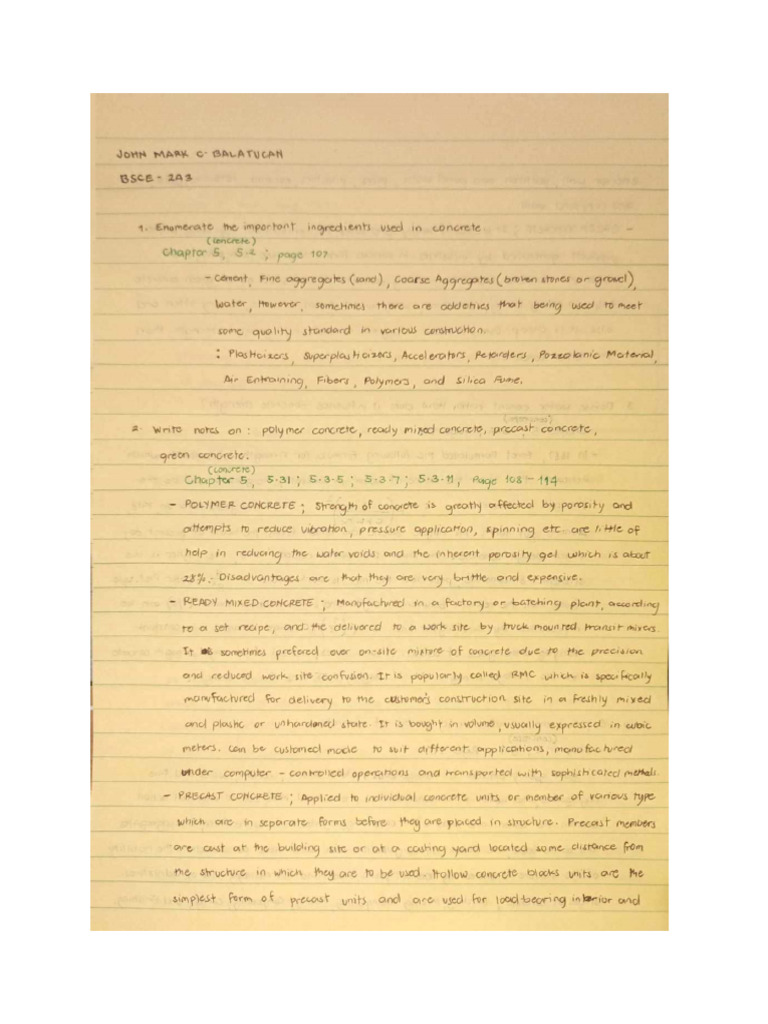 JOHN MARK C. BALATUCAN
BSCE - 2A3
1. Enumerate the important ingredients used in concrete
(concrete)
Chapter 5, 5-2 ; page 107
- Cement, Fine aggregates (sand), Coarse Aggregates (broken stones or gravel),
Water, However, sometimes there are addetives that being used to meet
some quality standard in various construction.
: Plasticizers, Superplasticizers, Accelerators, Retarders, Pozzolanic Material,
Air Entraining, Fibers, Polymers, and Silica Fume.
2. Write notes on : polymer concrete, ready mixed concrete, precast concrete,
green concrete.
(concrete)
Chapter 5, 5-31 ; 5-3-5 ; 5-3-7 ; 5-3-11, Page 108 - 114
- POLYMER CONCRETE ; Strength of concrete is greatly affected by porosity and
attempts to reduce vibration, pressure application, spinning etc. are little of
help in reducing the water voids and the inherent porosity gel which is about
28%. Disadvantages are that they are very brittle and expensive.
- READY MIXED CONCRETE ; Manufactured in a factory or batching plant, according
to a set recipe, and the delivered to a work site by truck mounted transit mixers.
It is sometimes prefered over on-site mixture of concrete due to the precision
and reduced work site confusion. It is popularly called RMC which is specifically
manufactured for delivery to the customer's construction site in a freshly mixed
and plastic or unhardened state. It is bought in volume, usually expressed in cubic
meters. Can be customed made to suit different applications, manufactured
under computer - controlled operations and transported with sophisticated methods.
- PRECAST CONCRETE ; Applied to individual concrete units or member of various type
which are in separate forms before they are placed in structure. Precast members
are cust at the building site or at a casting yard located some distance from
the structure in which they are to be used. Hollow concrete blocks units are the
simplest form of precast units and are used for load-bearing interior and